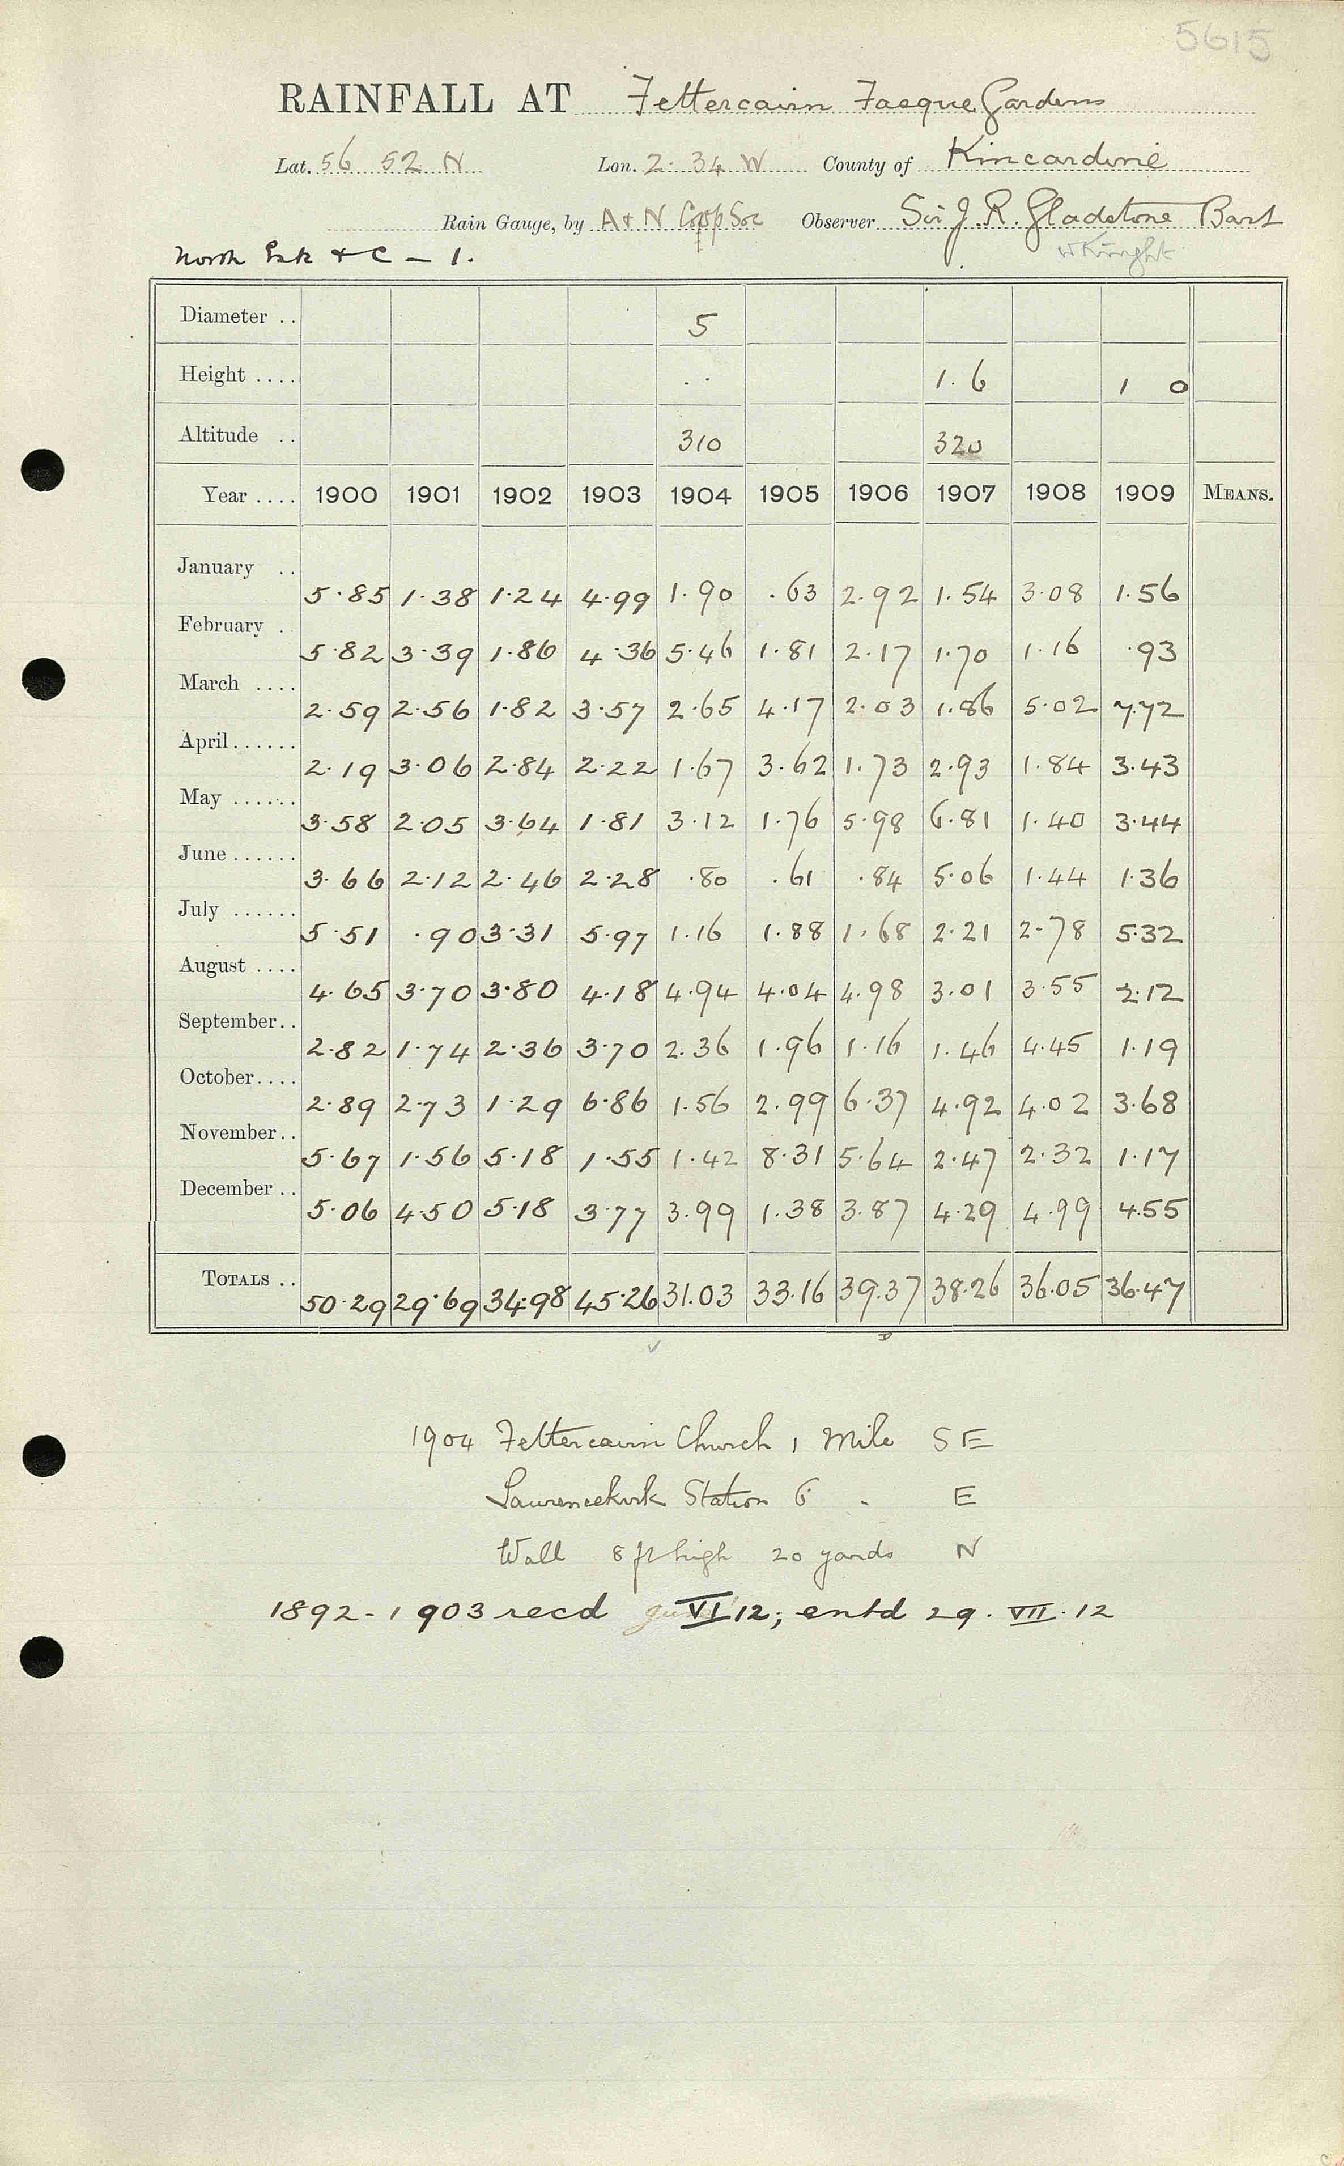 5615
RAINFALL AT Fettercairn Fasque Gardens
Lat. 56 52 N Lon. 2. 34 W County of Kincardine
Rain Gauge, by A & N Coop Soc Observer Sir J. R. Gladstone Bart
North Esk & C - 1. W Knight
Diameter .. 5
Height .... 1. 6 1 0
Altitude .. 310 320
Year .... 1900 1901 1902 1903 1904 1905 1906 1907 1908 1909 MEANS.
January .. 5.85 1.38 1.24 4.99 1.90 .63 2.92 1.54 3.08 1.56
February . 5.82 3.39 1.86 4.36 5.46 1.81 2.17 1.70 1.16 .93
March .... 2.59 2.56 1.82 3.57 2.65 4.17 2.03 1.86 5.02 7.72
April...... 2.19 3.06 2.84 2.22 1.67 3.62 1.73 2.93 1.84 3.43
May ...... 3.58 2.05 3.64 1.81 3.12 1.76 5.98 6.81 1.40 3.44
June ...... 3.66 2.12 2.46 2.28 .80 .61 .84 5.06 1.44 1.36
July ...... 5.51 .90 3.31 5.97 1.16 1.88 1.68 2.21 2.78 5.32
August .... 4.65 3.70 3.80 4.18 4.94 4.04 4.98 3.01 3.55 2.12
September.. 2.82 1.74 2.36 3.70 2.36 1.96 1.16 1.46 4.45 1.19
October.... 2.89 2.73 1.29 6.86 1.56 2.99 6.37 4.92 4.02 3.68
November.. 5.67 1.56 5.18 1.55 1.42 8.31 5.64 2.47 2.32 1.17
December .. 5.06 4.50 5.18 3.77 3.99 1.38 3.87 4.29 4.99 4.55
TOTALS .. 50.29 29.69 34.98 45.26 31.03 33.16 39.37 38.26 36.05 36.47
1904 Fettercairn Church 1 Mile SE
Laurencekirk Station 6 " E
Wall 8 ft high 20 yards N
1892-1903 recd VI 12; entd 29. VII. 12